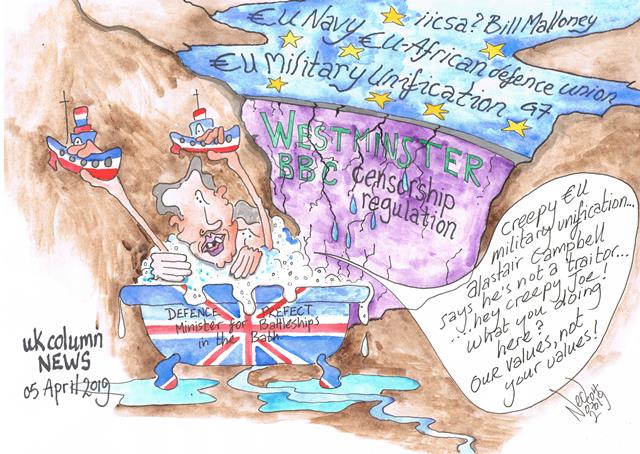 €U Navy iicsa? Bill Malloney
€U-African defence union
€U Military Unification G7
WESTMINSTER
BBC censorship
regulation
creepy €U
military unification..
alastair Campbell
says he's not a traitor...
....hey creepy Joe!
what you doing
here?
our values, not
your values!
DEFENCE PREFECT
Minister for Battleships
in the Bath.
uk column
NEWS
05 April 2019
2019